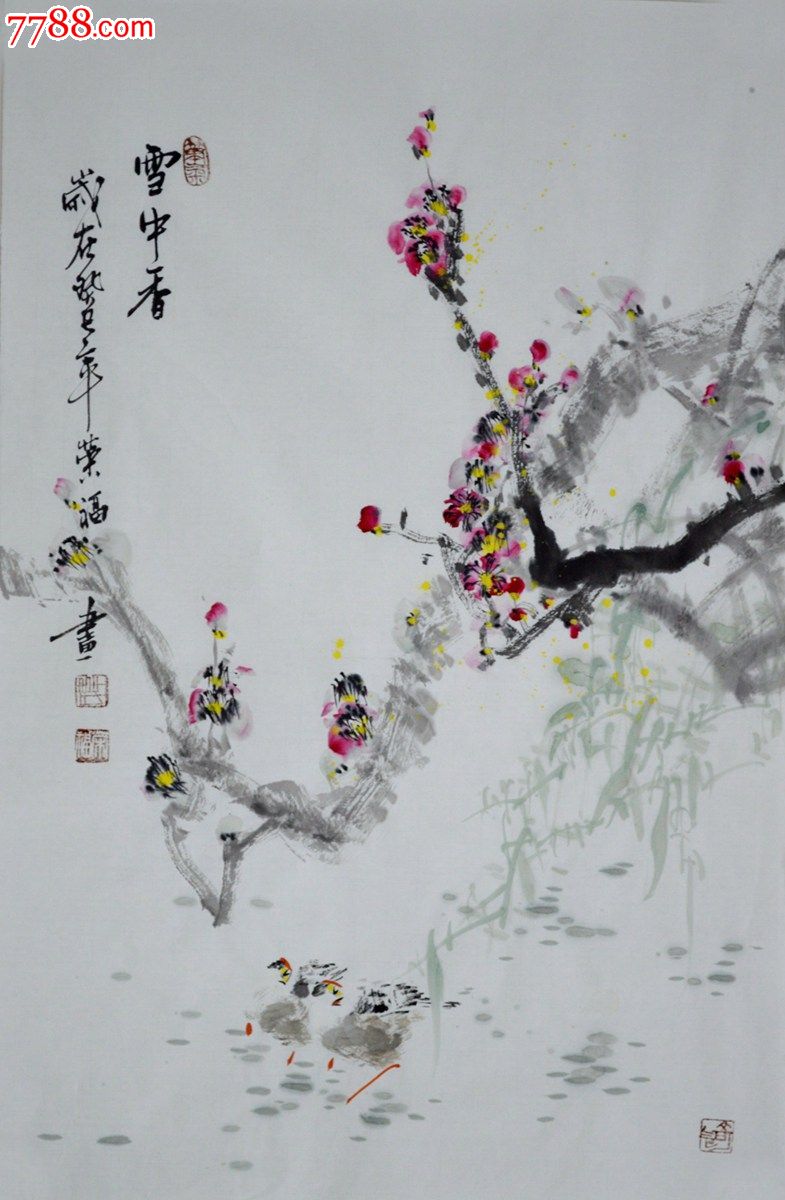 7788.com
雪中香
歲在癸巳年 荣福 畫